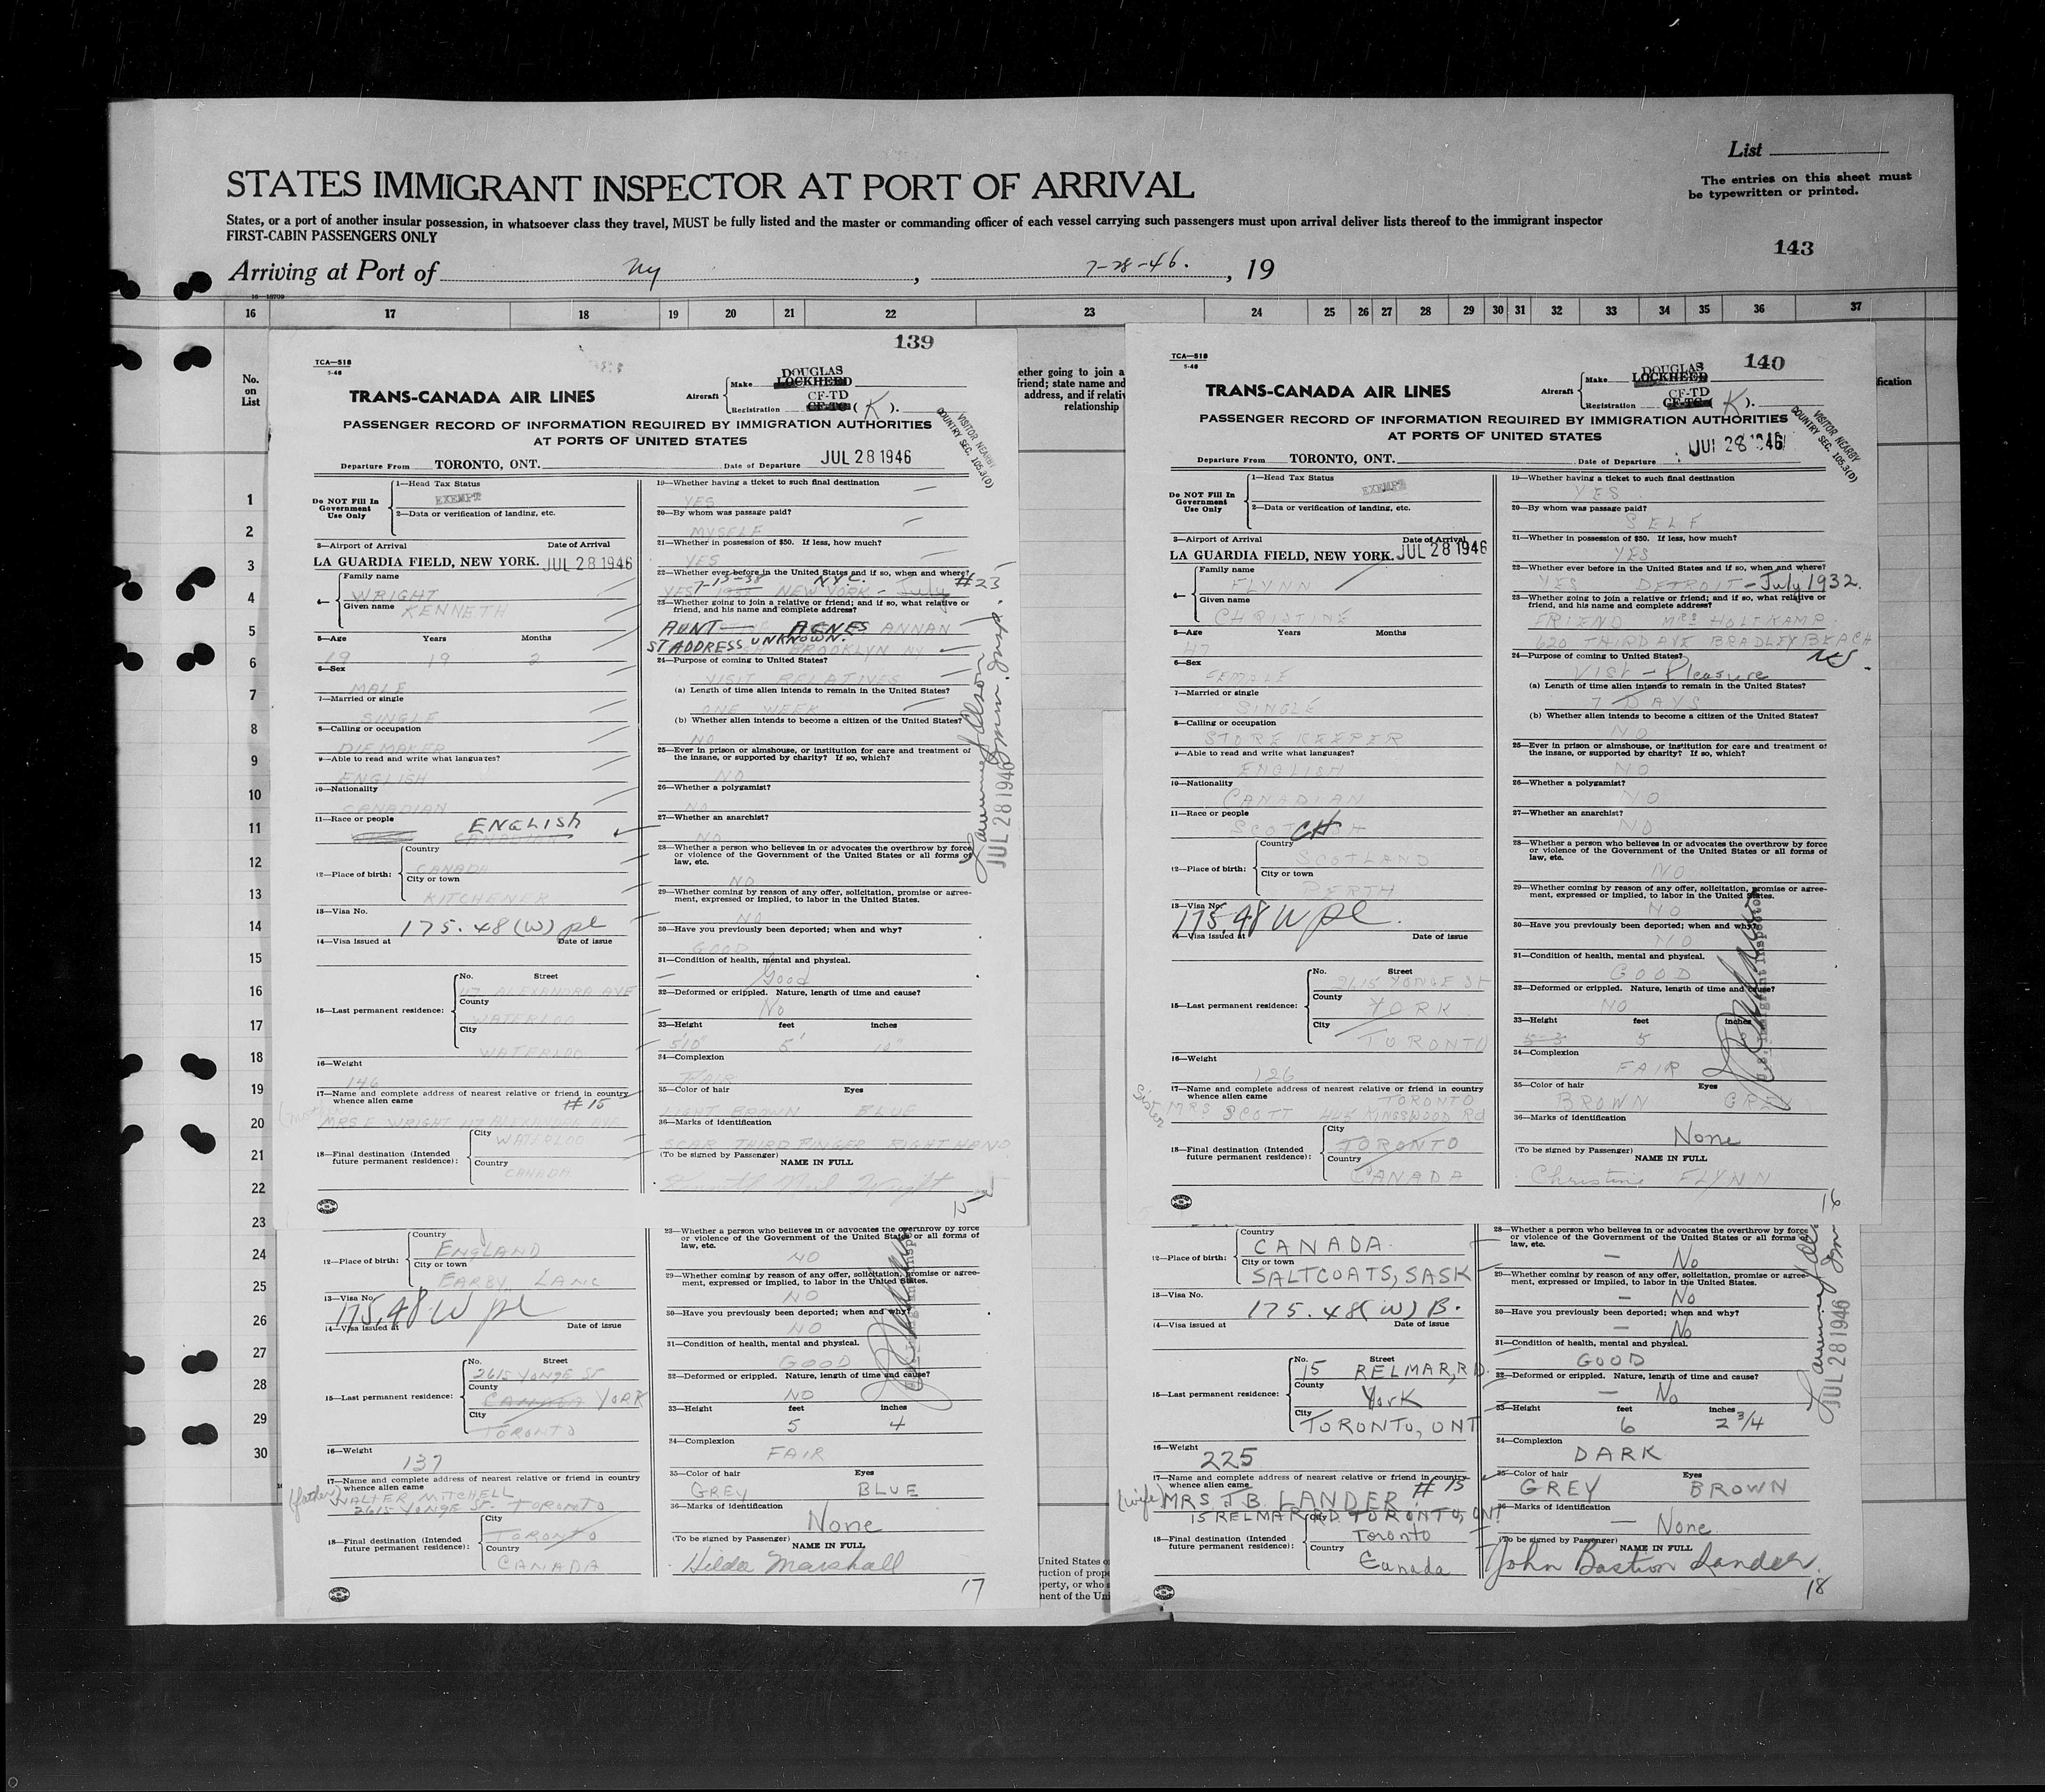 List
The entries on this sheet must
be typewritten or printed.
STATES IMMIGRANT INSPECTOR AT PORT OF ARRIVAL
States, or a port of another insular possession, in whatsoever class they travel, MUST be fully listed and the master or commanding officer of each vessel carrying such passengers must upon arrival deliver lists thereof to the immigrant inspector
FIRST-CABIN PASSENGERS ONLY
143
Arriving at Port of Ny , 7-28-46. , 19
16 17 18 19 20 21 22 23 24 25 26 27 28 29 30 31 32 33 34 35 36 37
No.
on
List
1
2
3
4
5
6
7
8
9
10
11
12
13
14
15
16
17
18
19
20
21
22
23
24
25
26
27
28
29
30
139
TCA—518
5-46
TRANS-CANADA AIR LINES
Aircraft
Make DOUGLAS
LOCKHEED
Registration CF-TD
CF-TC (K).
PASSENGER RECORD OF INFORMATION REQUIRED BY IMMIGRATION AUTHORITIES
AT PORTS OF UNITED STATES
VISITOR NEARBY
COUNTRY SEC. 105.3(D)
Departure From TORONTO, ONT. Date of Departure JUL 28 1946
Do NOT Fill In
Government
Use Only
1—Head Tax Status
EXEMPT
2—Data or verification of landing, etc.
3—Airport of Arrival Date of Arrival
LA GUARDIA FIELD, NEW YORK. JUL 28 1946
4—
Family name
WRIGHT
Given name
KENNETH
5—Age Years Months
19 19 2
6—Sex
MALE
7—Married or single
SINGLE
8—Calling or occupation
DIEMAKER
9—Able to read and write what languages?
ENGLISH
10—Nationality
CANADIAN
11—Race or people
ENGLISH
CANADIAN
12—Place of birth:
Country
CANADA
City or town
KITCHENER
13—Visa No.
175.48(W) pl
14—Visa issued at Date of issue
15—Last permanent residence:
No. Street
47 ALEXANDRA AVE
County
WATERLOO
City
WATERLOO
16—Weight
146
17—Name and complete address of nearest relative or friend in country
whence alien came
#15
MRS E WRIGHT
18—Final destination (Intended
future permanent residence):
City
WATERLOO
Country
CANADA
19—Whether having a ticket to such final destination
YES
20—By whom was passage paid?
MYSELF
21—Whether in possession of $50. If less, how much?
YES
22—Whether ever before in the United States and if so, when and where?
7-15-38 NYC. #23
YES 1938 NEW YORK - July
23—Whether going to join a relative or friend; and if so, what relative or
friend, and his name and complete address?
AUNT AGNES ANNAN
ST ADDRESS UNKNOWN. BROOKLYN NY
24—Purpose of coming to United States?
VISIT RELATIVES
(a) Length of time alien intends to remain in the United States?
ONE WEEK
(b) Whether alien intends to become a citizen of the United States?
NO
25—Ever in prison or almshouse, or institution for care and treatment of
the insane, or supported by charity? If so, which?
NO
26—Whether a polygamist?
NO
27—Whether an anarchist?
NO
28—Whether a person who believes in or advocates the overthrow by force
or violence of the Government of the United States or all forms of
law, etc.
NO
29—Whether coming by reason of any offer, solicitation, promise or agree-
ment, expressed or implied, to labor in the United States.
NO
30—Have you previously been deported; when and why?
GOOD
31—Condition of health, mental and physical.
Good
32—Deformed or crippled. Nature, length of time and cause?
No
33—Height feet inches
5'10" 5' 10"
34—Complexion
FAIR
35—Color of hair Eyes
LIGHT BROWN BLUE
36—Marks of identification
SCAR THIRD FINGER RIGHT HAND
(To be signed by Passenger)
NAME IN FULL
Kenneth Neil Wright
15
JUL 28 1946
Immn. Insp.
140
TCA—518
5-46
TRANS-CANADA AIR LINES
Aircraft
Make DOUGLAS
LOCKHEED
Registration CF-TD
CF-TC (K).
PASSENGER RECORD OF INFORMATION REQUIRED BY IMMIGRATION AUTHORITIES
AT PORTS OF UNITED STATES
VISITOR NEARBY
COUNTRY SEC. 105.3(D)
Departure From TORONTO, ONT. Date of Departure JUL 28 1946
Do NOT Fill In
Government
Use Only
1—Head Tax Status
EXEMPT
2—Data or verification of landing, etc.
3—Airport of Arrival Date of Arrival
LA GUARDIA FIELD, NEW YORK. JUL 28 1946
4—
Family name
FLYNN
Given name
CHRISTINE
5—Age Years Months
47
6—Sex
FEMALE
7—Married or single
SINGLE
8—Calling or occupation
STORE KEEPER
9—Able to read and write what languages?
ENGLISH
10—Nationality
CANADIAN
11—Race or people
SCOTCH
12—Place of birth:
Country
SCOTLAND
City or town
PERTH
13—Visa No.
175.48 W pl.
14—Visa issued at Date of issue
15—Last permanent residence:
No. Street
2615 YONGE ST
County
YORK
City
TORONTO
16—Weight
126
17—Name and complete address of nearest relative or friend in country
whence alien came
TORONTO
Sister MRS SCOTT 445 KINGSWOOD Rd
18—Final destination (Intended
future permanent residence):
City
TORONTO
Country
CANADA
19—Whether having a ticket to such final destination
YES
20—By whom was passage paid?
SELF
21—Whether in possession of $50. If less, how much?
YES
22—Whether ever before in the United States and if so, when and where?
YES DETROIT - July 1932.
23—Whether going to join a relative or friend; and if so, what relative or
friend, and his name and complete address?
FRIEND MRS HOLTKAMP.
620 THIRD AVE BRADLEY BEACH
24—Purpose of coming to United States? NJ
VISIT - Pleasure
(a) Length of time alien intends to remain in the United States?
7 DAYS
(b) Whether alien intends to become a citizen of the United States?
NO
25—Ever in prison or almshouse, or institution for care and treatment of
the insane, or supported by charity? If so, which?
NO
26—Whether a polygamist?
NO
27—Whether an anarchist?
NO
28—Whether a person who believes in or advocates the overthrow by force
or violence of the Government of the United States or all forms of
law, etc.
NO
29—Whether coming by reason of any offer, solicitation, promise or agree-
ment, expressed or implied, to labor in the United States.
NO
30—Have you previously been deported; when and why?
NO
31—Condition of health, mental and physical.
GOOD
32—Deformed or crippled. Nature, length of time and cause?
NO
33—Height feet inches
5-3 5
34—Complexion
FAIR
35—Color of hair Eyes
BROWN GREY
36—Marks of identification
None
(To be signed by Passenger)
NAME IN FULL
Christine FLYNN
16
U.S. Immigrant Inspector
12—Place of birth:
Country
ENGLAND
City or town
EARBY LANC
13—Visa No.
175.48 W pl
14—Visa issued at Date of issue
15—Last permanent residence:
No. Street
2615 YONGE ST
County
CANADA YORK
City
TORONTO
16—Weight
137
17—Name and complete address of nearest relative or friend in country
whence alien came
(father) WALTER MITCHELL
2615 YONGE ST. TORONTO
18—Final destination (Intended
future permanent residence):
City
TORONTO
Country
CANADA
28—Whether a person who believes in or advocates the overthrow by force
or violence of the Government of the United States or all forms of
law, etc.
NO
29—Whether coming by reason of any offer, solicitation, promise or agree-
ment, expressed or implied, to labor in the United States.
NO
30—Have you previously been deported; when and why?
NO
31—Condition of health, mental and physical.
GOOD
32—Deformed or crippled. Nature, length of time and cause?
NO
33—Height feet inches
5 4
34—Complexion
FAIR
35—Color of hair Eyes
GREY BLUE
36—Marks of identification
None
(To be signed by Passenger)
NAME IN FULL
Hilda Marshall
17
12—Place of birth:
Country
CANADA.
City or town
SALTCOATS, SASK
13—Visa No.
175.48(W) B.
14—Visa issued at Date of issue
15—Last permanent residence:
No. Street
15 RELMAR, RD.
County
York
City
TORONTO, ONT
16—Weight
225
17—Name and complete address of nearest relative or friend in country
whence alien came
(wife) MRS J B. LANDER #15
15 RELMAR RD. TORONTO, ONT
18—Final destination (Intended
future permanent residence):
City
Toronto
Country
Canada
28—Whether a person who believes in or advocates the overthrow by force
or violence of the Government of the United States or all forms of
law, etc.
— No
29—Whether coming by reason of any offer, solicitation, promise or agree-
ment, expressed or implied, to labor in the United States.
— No
30—Have you previously been deported; when and why?
— No
31—Condition of health, mental and physical.
GOOD
32—Deformed or crippled. Nature, length of time and cause?
— No
33—Height feet inches
6 2 3/4
34—Complexion
DARK
35—Color of hair Eyes
GREY BROWN
36—Marks of identification
— None
(To be signed by Passenger)
NAME IN FULL
John Bastion Lander.
18
JUL 28 1946